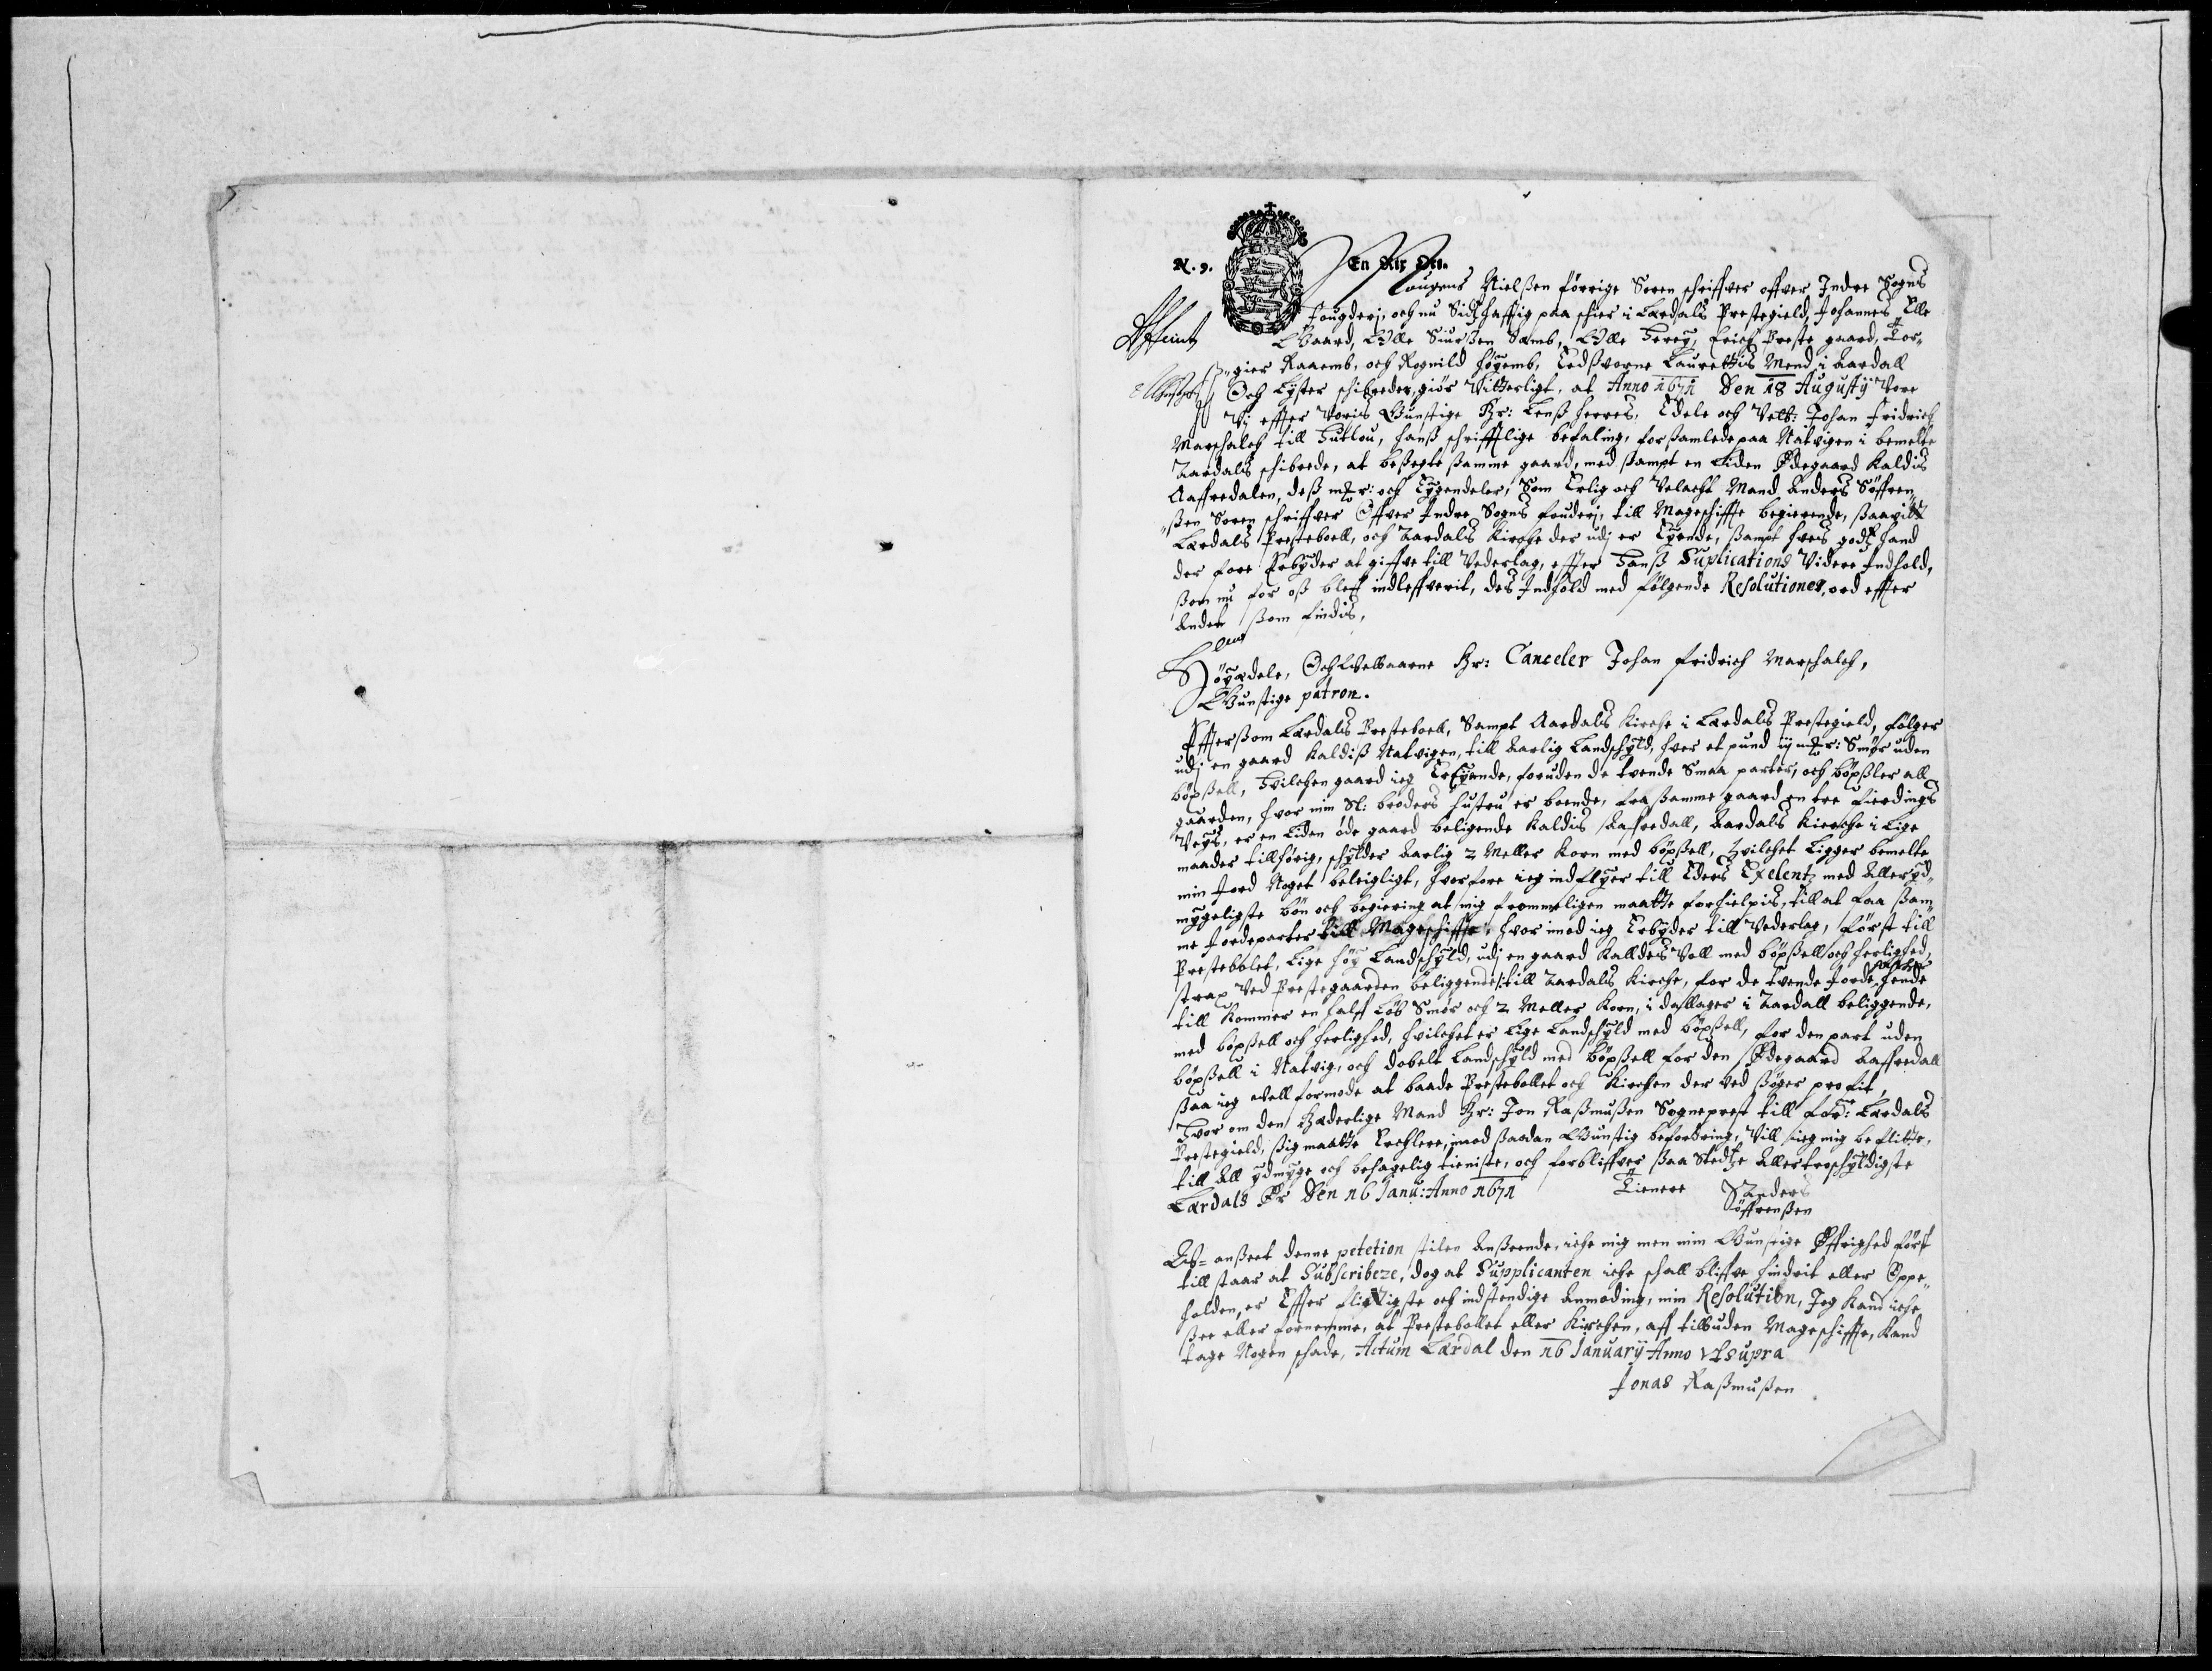 N. 9.
En Rix Ort.
Lougens Nielsßen förrige Soren schriffver offver Indre Sogns
Fougderj, och nu Sidzhafftig paa schier i Lærdals Prestegield, Johannes Elle
Waard, Olle Siurßen Sæmb, Olle Feröy, Erich Preste gaard, Tor„
„gier Raaemb, och Rognild höyemb, Eedßvorne Laurettis Mend i Aardall
Och Lyster schibreder, giör Vitterligt, at Anno 1671 Den 18 Augustij Vore
Vi effter Voris Gunstige Hr: Lenß herres, Edele och Velb: Johan Fridrich
Marschalch till Huttou, hanß schrifftlige befaling, forßamlede paa Natvigen i bemelte
Aardals schibrede, at beßegte ßamme gaard, med ßampt en Liden Ödegaard kaldis
Aaffredalen, deß mkr: och Eyendeler, Som Erlig och Velacht Mand Anders Söffren„
„ßen Soren schriffver Offver Indre Sogns fouderj, till Mageschiffte begierende, ßaavit
Lærdals Presteboell, och Aardals Kirche der udj er Eyende, ßampt hveis godz hand
der fore Erbyder at giffve till Vederlag, effter Hanß Suplications Videre Indhold,
ßom nu for oß bleff indleffverit, des Indhold med fölgende Resolutioner, ord effter
andet ßom findis,
Höyædele, Och Velbaarne Hr: Canceler Johan Fridrich Marschalch,
Gunstige patron.
Effterßom Lærdals Presteboell, Sampt Aardals Kirche i Lærdals Prestegield, fölger
udj en gaard kaldiß Natvigen, till Aarlig Landschyld, hver et pund ij mkr: Smör uden
böxßell, Hvilchen gaard ieg Er Eyende, foruden de tvende Smaa parter, och böxßler all
gaarden, hvor min Sl: broders hustru er boende, fra ßamme gaard en tre fierdings
Veys, er en Liden öde gaard beligende kaldis Aafredall, Aardals Kirche i Lige
maader tillhörig, schylder Aarlig 2 Meller Korn med böxßell, Hvilchet Ligger bemelte
min Jord Noget beleigligt, hvorfore ieg indflyer till Eders Exelentz med Allerÿd„
mygeligste bön och begiering at mig frommeligen maatte forhielpis, till at faa ßam„
me Jordeparter till Mageschiffte, hvor imod ieg Erbyder till Vederlag, först till
Prestebolet, Lige höy Landschyld, udj en gaard Kalldes Voll med böxßell och herlighed,
strax Ved Prestegaarden beliggende: till Aardals Kirche, for de tvende Jorde parter hende
till kommer en halff Löb Smör och 2 Meller Korn, i dallager i Aardall beliggende,
med böxßell och herlighed, hvilchet er Lige Landschyld med böxßell, for den part uden
böxßell i Natvig, och dobelt Landschyld med böxßell for den Ödegaard Aaffredall
ßaa ieg Vell formode at baade Prestebollet och Kirchen der ved ßöger profit,
Hvor om den Hæderlige Mand Hr: Jon Raßmußen Sogneprest till forne: Lærdals
Prestegield, ßig maatte Erchlere, imod ßaadan Gunstig befordring, Vill ieg mig beflitte,
till All ydmyge och behagelig tieniste, och forbliffver ßaa Stedtze Allertroschyldigste
Lærdals Ör Den 16 Janu: Anno 1671 Tienere Anders
Söffrenßen
U- anßeet denne petetion stilen Anßeende, iche mig men min Gunstige Öffrighed först
till staar at Subscribere, dog at Supplicanten iche schall bliffve hindrit eller Oppe„
holden, er Effter flittigste och indstendige Anmoding, min Resolution, Jeg kand iche
ßee eller fornemme, at Prestebollet eller Kirchen, aff tilbuden Mageschiffte, kand
tage Nogen schade, Actum Lærdal den 16 Januarij Anno Vtsupra
Jonas Raßmußen